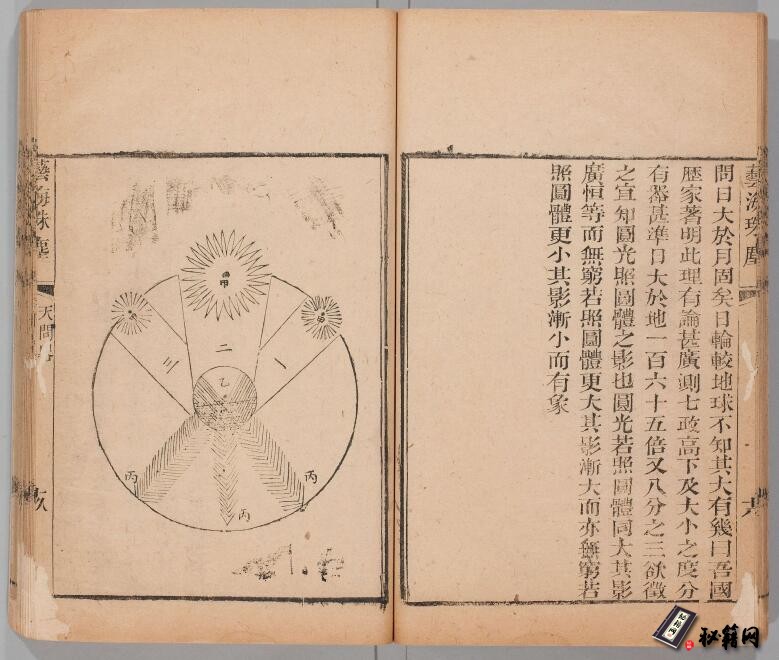 藝海珠塵
問日大於月固矣日輪較地球不知其大有幾曰吾國
歷家著明此理有論甚廣測七政高下及大小之度分
有器甚準日大於地一百六十五倍又八分之三欲徵
之宜知圓光照圓體之影也圓光若照圓體同大其影
廣恒等而無窮若照圓體更大其影漸大而亦無窮若
照圓體更小其影漸小而有象
甲
二
三
一
乙
丙
丙
丙
藝海珠塵
天問畧
秘籍网